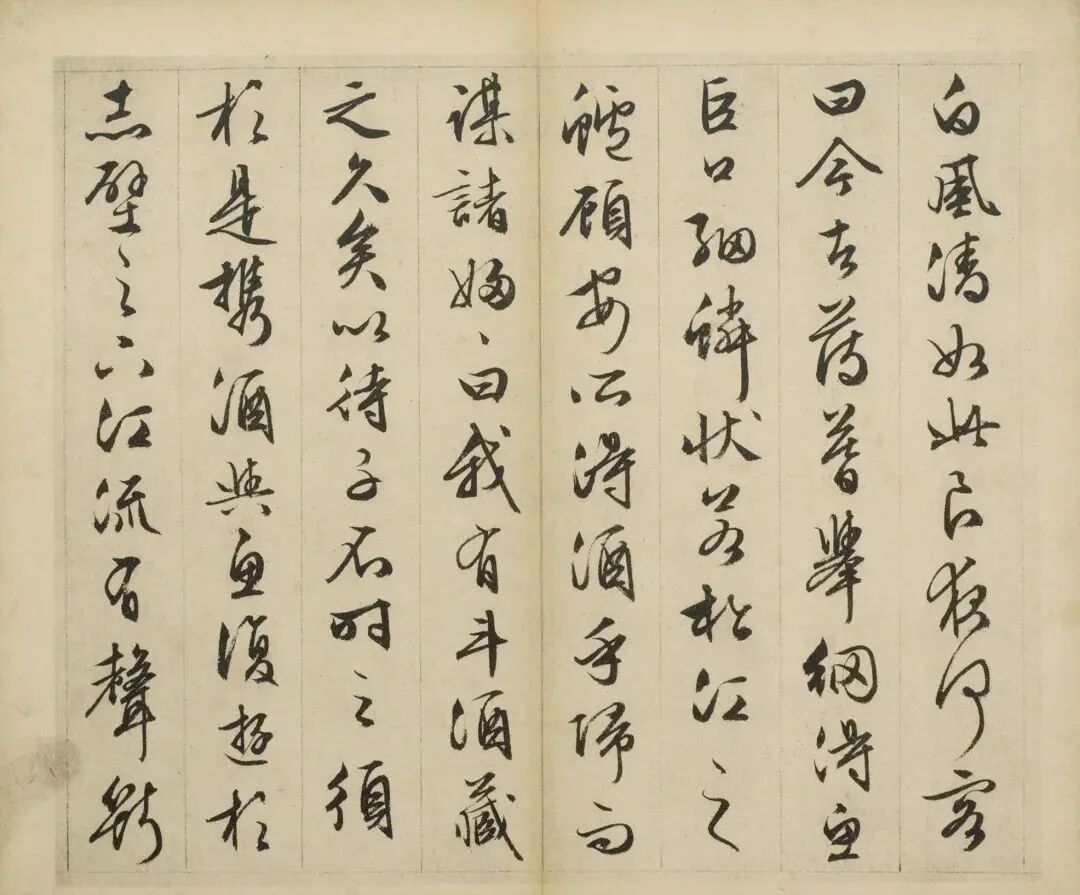 白風清如此良夜何客
曰今者薄暮舉網得魚
巨口細鱗狀若松江之
鱸顧安所得酒乎歸而
謀諸婦〻曰我有斗酒藏
之久矣以待子不時之須
於是携酒與魚復遊於
赤壁之下江流有聲斷